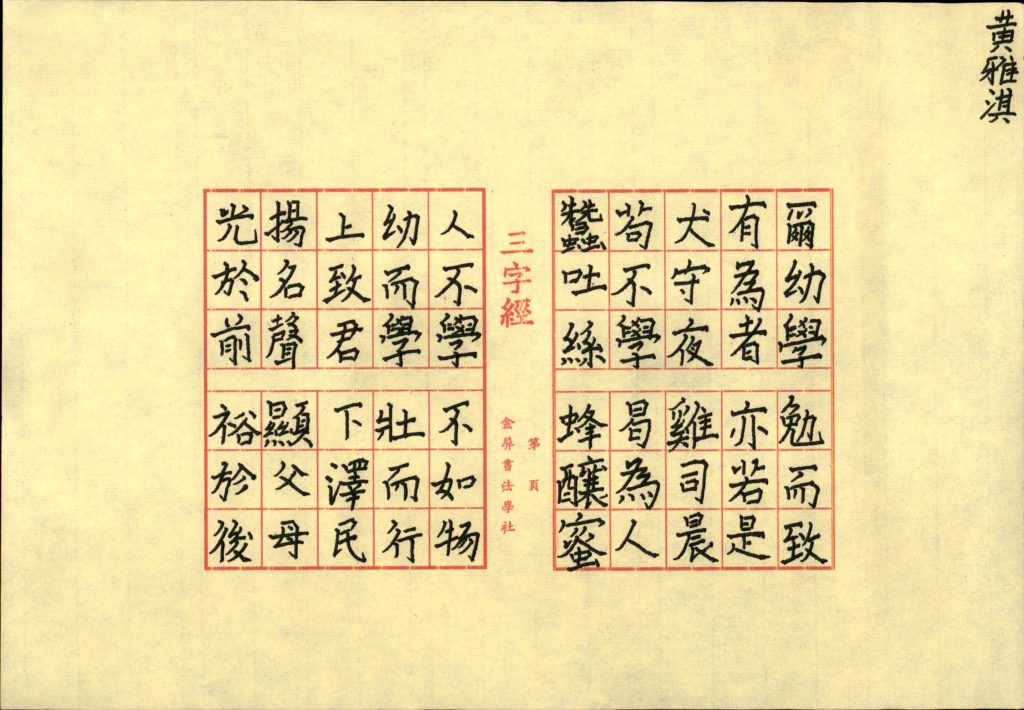 黄雅淇
爾幼學勉而致
有為者亦若是
犬守夜雞司晨
苟不學曷為人
蠶吐絲蜂釀蜜
三字經
第 頁
金屏書法學社
人不學不如物
幼而學壯而行
上致君下澤民
揚名聲顯父母
光於前裕於後